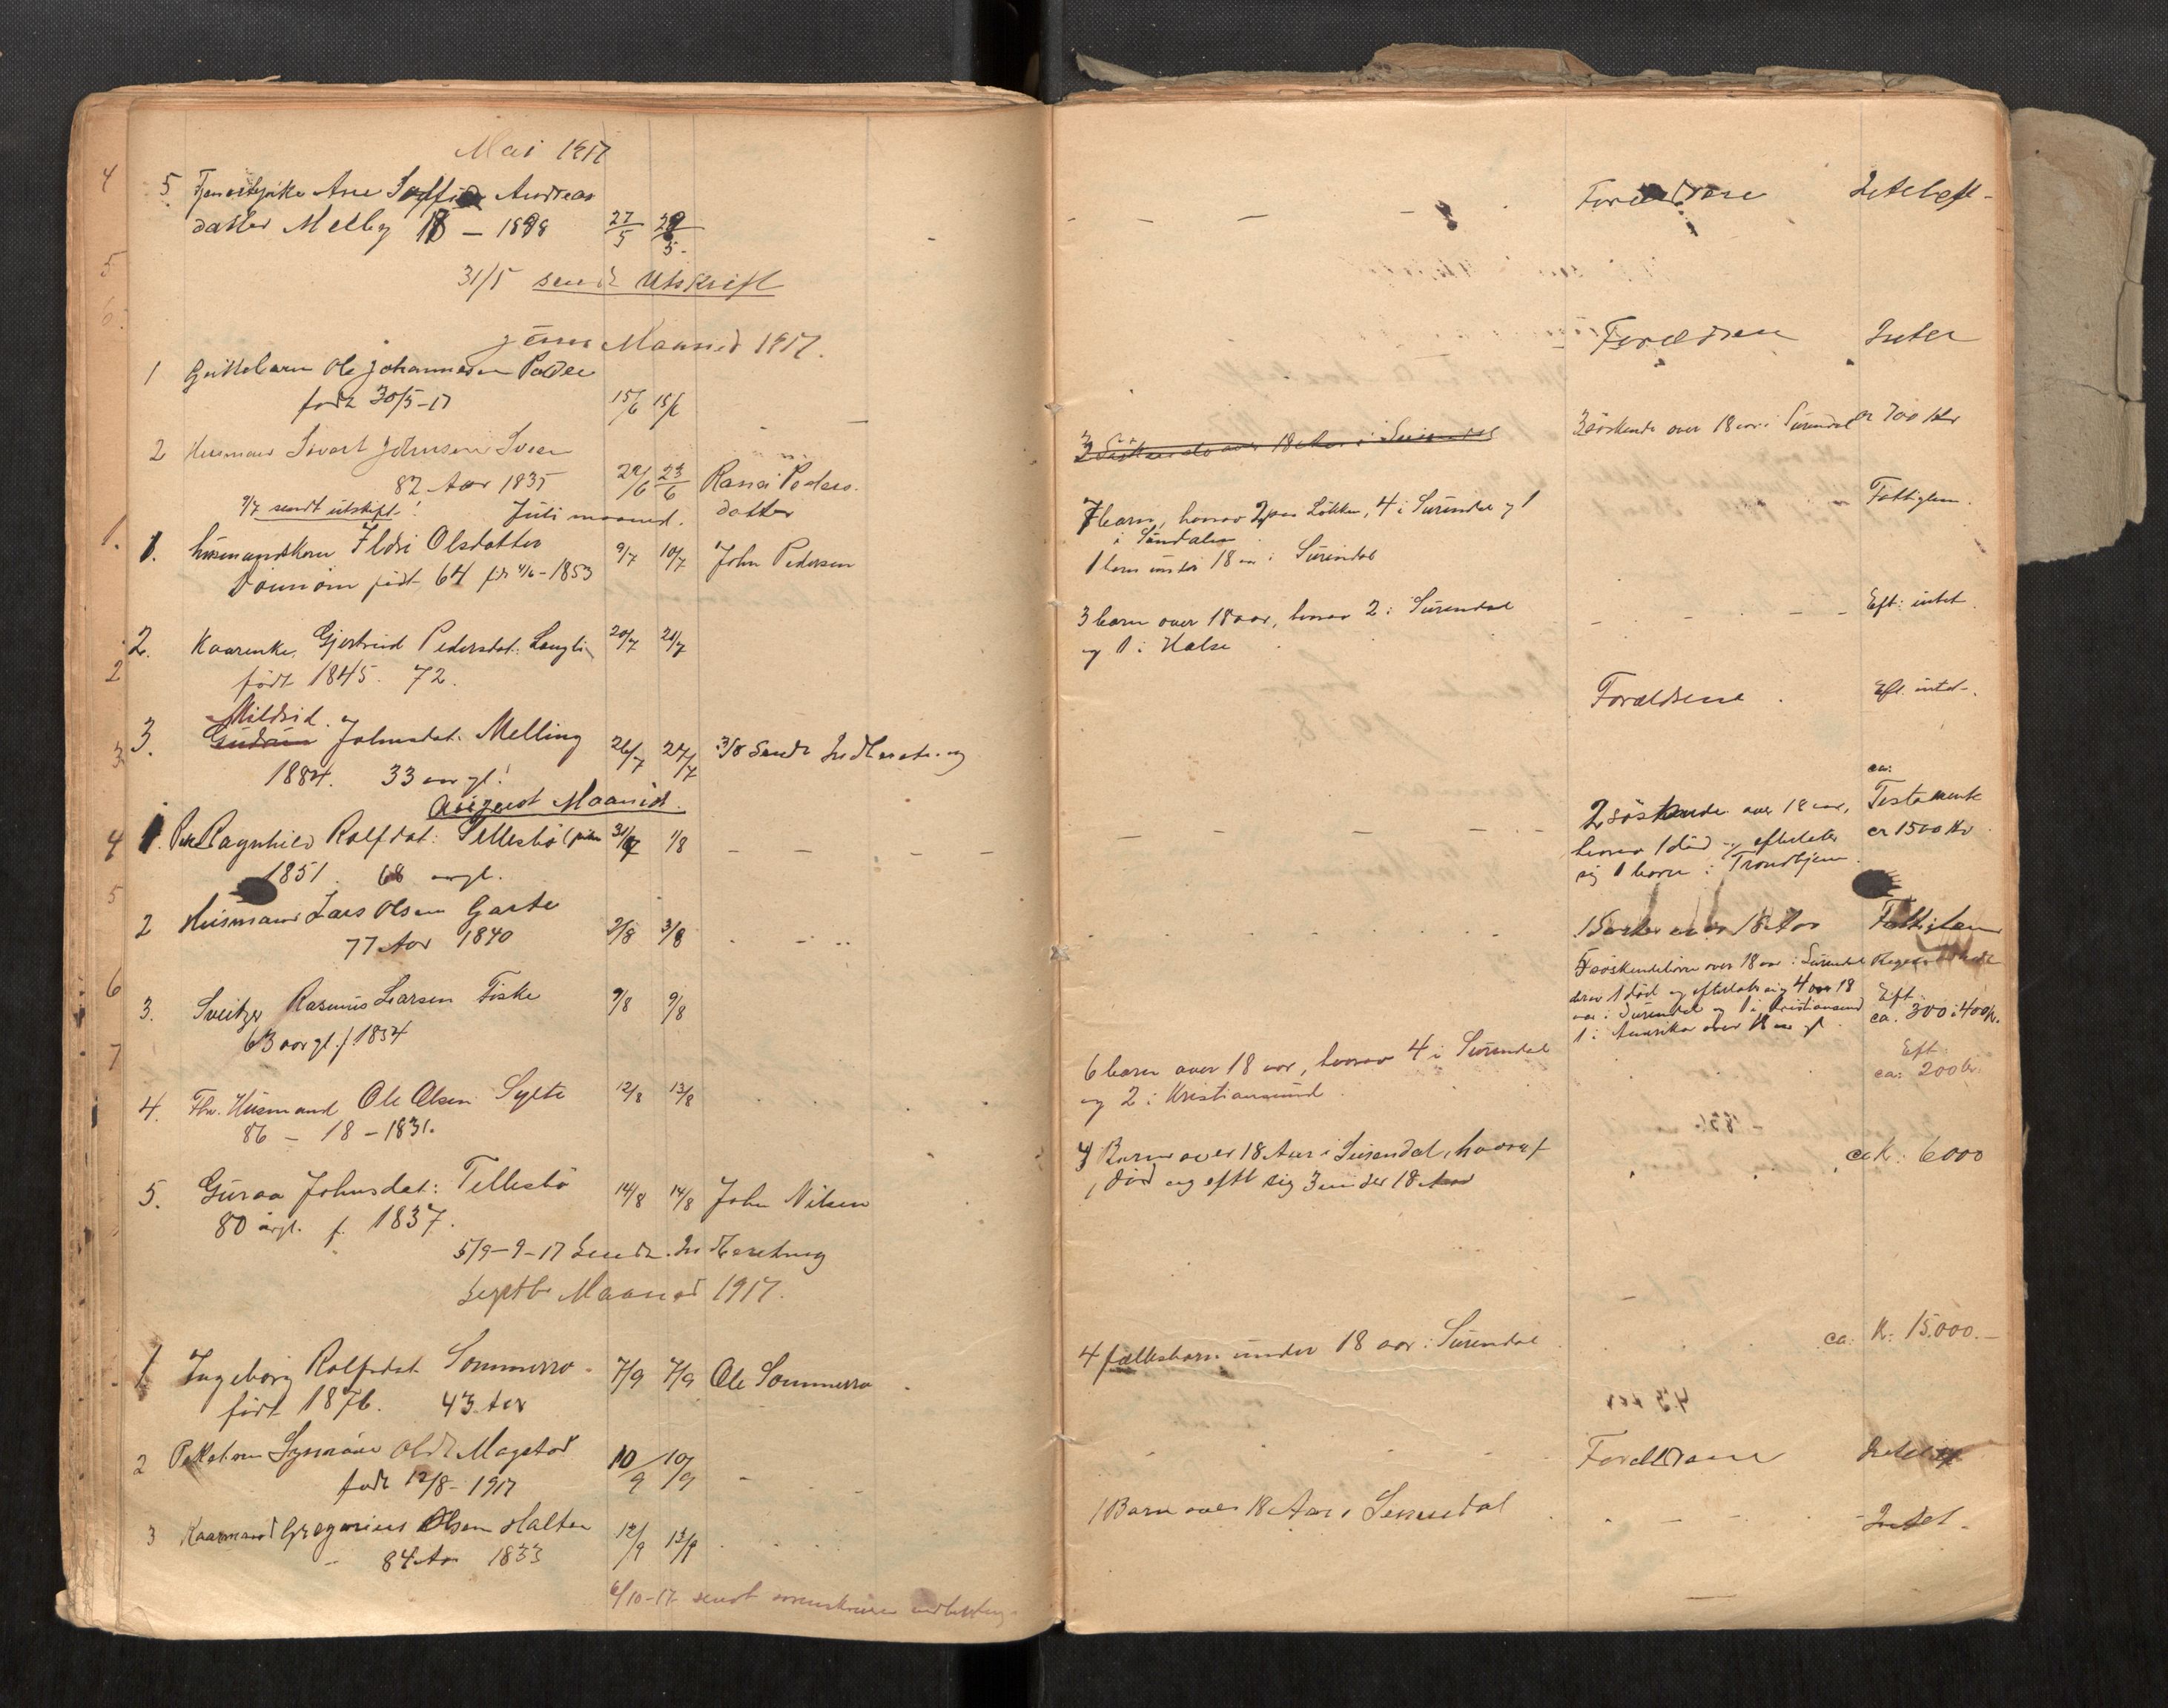 Mai 1917
4
5 Tjenestepike Ane Andreas
datter Melby 18 – 1898 27/5 29/5 –
– – – – Foreldrene Intet eft –
5
31/5 sendt Utskrift
6
Maaned 1917.
1 Ole Johannesen
født 30/5–17 15/6 15/6 – –
Foreldren Intet
2 Husmand Sivert Johnsen Svean
82 Aar 1835 22/6 23/6 Ranei Peders.
datter
3 Söskende over 18 Aar i Surendal
3 söskende over 18 aar i Surendal ca 700 Kr
9/7 sendt utskrift! Juli maaned.
1.
1. Husmandskone Ildri Olsdatter
født 64 4/6–1853 9/7 10/7 John Pedersen
7 barn, hvorav 2 paa Løkken, 4 i Surendal og 1
i Sundalen
1 barn under 18 aar i Surendal
Fattiglem.
2. Kaarenke. Gjertrud Pedersdat. Langli 20/7 21/7
født 1845. 72.
3 barn over 18 aar, hvorav 2 i Surendal
og 1 i Halse
– – – – Eft: intet.
2
Mildrid
3. Gudrun Johnsdat. Melling 26/7 27/7 3/8 Sendt Indberetning
1884. 33 aar gl!
Foreldrene. Eft. intet.
3
August Maaned.
4
1. Ragnhild Rolfsdat: Tellesbø 31/7 1/8 – – – –
1851. 68 aargl.
2 söskende over 18 aar,
hvorav 1 død og efterlater
sig 1 barn i Trondhjem.
ca:
Testamente
er 1500 Kr.
5
2 Husmand Lars Olsen Garte
77 Aar 1840 2/8 3/8
over 18 Aar Fattiglem
6
3. Sveitzer Rasmus Larsen Fiske 9/8 9/8
63 aar gl. f. 1854
7 söskendebørn over 18 aar i Surendal
derav 1 død og efterlot sig 4 over 18
aar i Surendal og 1 i Kristiansund
1 i Amerika over 18 aar gl.
Eft:
ca. 300 i 400 kr.
7
4. Fhv. Husmand Ole Olsen Sylte 12/8 13/8
86 – 18 – 1831.
6 barn over 18 aar, hvorav 4 i Surendal
og 2 i Kristiansund.
Eft:
ca: 200 kr.
5. Guraa Johnsdat: Tellesbø 14/8 14/8 John Nilsen
80 årgl. f. 1837.
Barn over 18 Aar i Surendal, hvoraf
1 død og eftl sig 3 under 18 Aar
ca K: 6000
5/9–9–17 Sendt. Indberetning
Septbr Maaned 1917.
1 Ingeborg Rolfsdat Sommerro. 7/9 7/9 Ole Sommerro
født 1876. 43 Aar
4 fællesbarn under 18 aar i Surendal.
ca: K: 15.000.–
2 Olsd Magstad
født 12/8–1917 10/9 10/9 –
Foreldrene
3 Kaarmand Gregorius Olsen Halten
– 84 Aar 1833 12/9 13/9
1 Barn over 18 Aar i Surendal
– – – Intet.
6/10–17 sendt sorenskriver indberetning